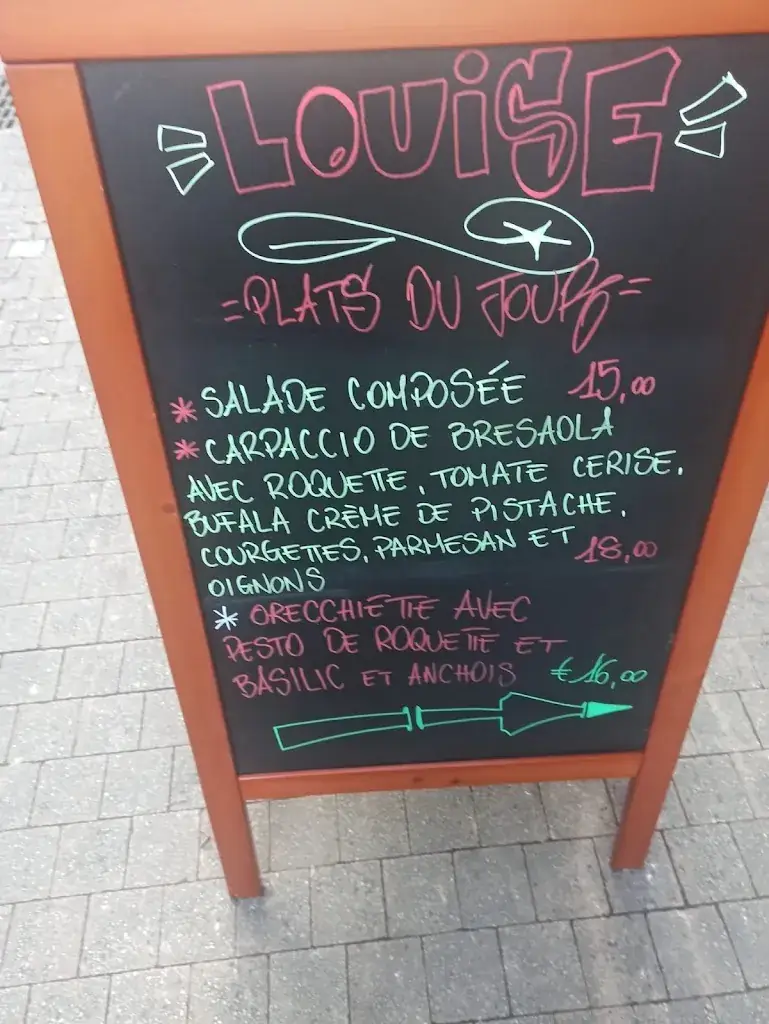 LOUISE
=PLATS DU JOUR=
* SALADE COMPOSÉE 15,00
* CARPACCIO DE BRESAOLA
AVEC ROQUETTE, TOMATE CERISE,
BUFALA CRÈME DE PISTACHE,
COURGETTES, PARMESAN ET 18,00
OIGNONS
* ORECCHIETTE AVEC
PESTO DE ROQUETTE ET
BASILIC ET ANCHOIS €16,00